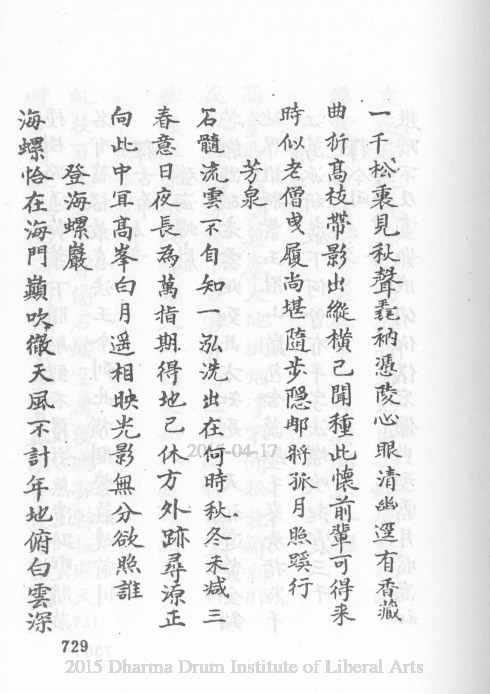 一千松裏見秋聲毳衲憑陵心眼清幽選有香藏
曲折髙枝帶影出縱橫已聞種此懷前輩可得来
時似老僧曵履尚堪隨步隠却將孤月照蹊行
芳泉
石髓流雲不自知一泓洗出在何時秋冬未减三
春意日夜長為萬指期得地已休方外跡尋源正
向此中耳髙峯白月遥相映光影無分欲照誰
登海螺巖
海螺恰在海門巔吹徹天風不計年地俯白雲深
729
2015-04-17
2015 Dharma Drum Institute of Liberal Arts